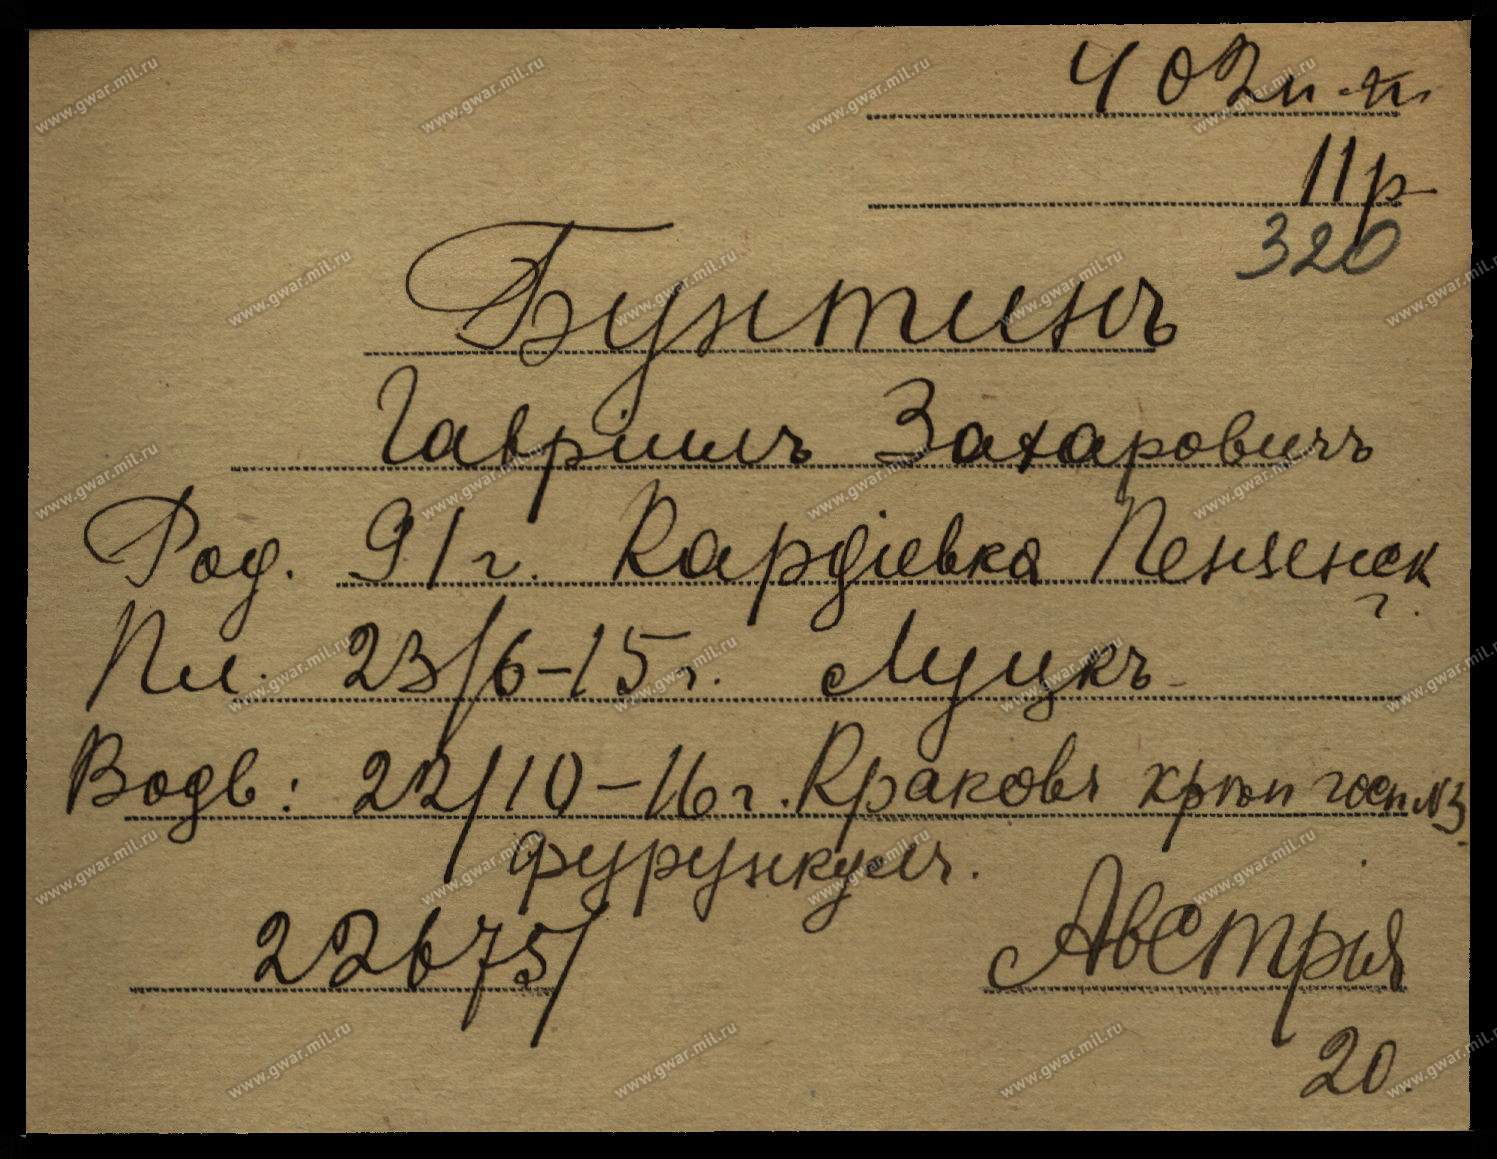 402 п. п.
11 р
320
Бунтинъ
Гавріилъ Захаровичъ
Род. 91 г. Кардіевка Пензенск
г.
Пл. 23/6-15 г. Луцкъ
Водв: 22/10-16 г. Краковъ крѣп госп № 3
фурункулъ.
22675/
Австрия
20.